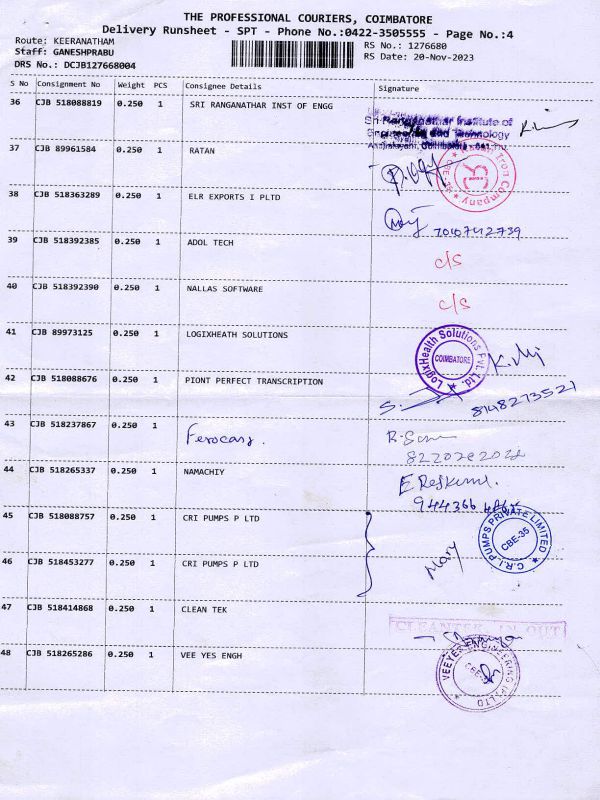 THE PROFESSIONAL COURIERS, COIMBATORE
Delivery Runsheet - SPT - Phone No.:0422-3505555 - Page No.:4
Route: KEERANATHAM
RS No.: 1276680
Staff: GANESHPRABU
RS Date: 20-Nov-2023
DRS No.: DCJB127668004
S No Consignment No Weight PCS Consignee Details Signature
36 CJB 518088819 0.250 1 SRI RANGANATHAR INST OF ENGG
Sri Ranganathar Institute of
Engineering and Technology
37 CJB 89961584 0.250 1 RATAN
Iron Company
38 CJB 518363289 0.250 1 ELR EXPORTS I PLTD
7010742739
39 CJB 518392385 0.250 1 ADOL TECH
c/s
40 CJB 518392390 0.250 1 NALLAS SOFTWARE
c/s
41 CJB 89973125 0.250 1 LOGIXHEATH SOLUTIONS
LogixHealth Solutions Pvt. Ltd.
COIMBATORE
42 CJB 518088676 0.250 1 PIONT PERFECT TRANSCRIPTION
8148273521
43 CJB 518237867 0.250 1
44 CJB 518265337 0.250 1 NAMACHIY
45 CJB 518088757 0.250 1 CRI PUMPS P LTD
C.R.I. PUMPS PRIVATE LIMITED
CBE-35
46 CJB 518453277 0.250 1 CRI PUMPS P LTD
Mary
47 CJB 518414868 0.250 1 CLEAN TEK
CLEANTEK IN OUT
48 CJB 518265286 0.250 1 VEE YES ENGH
VEEYES ENGINEERING (P) LTD